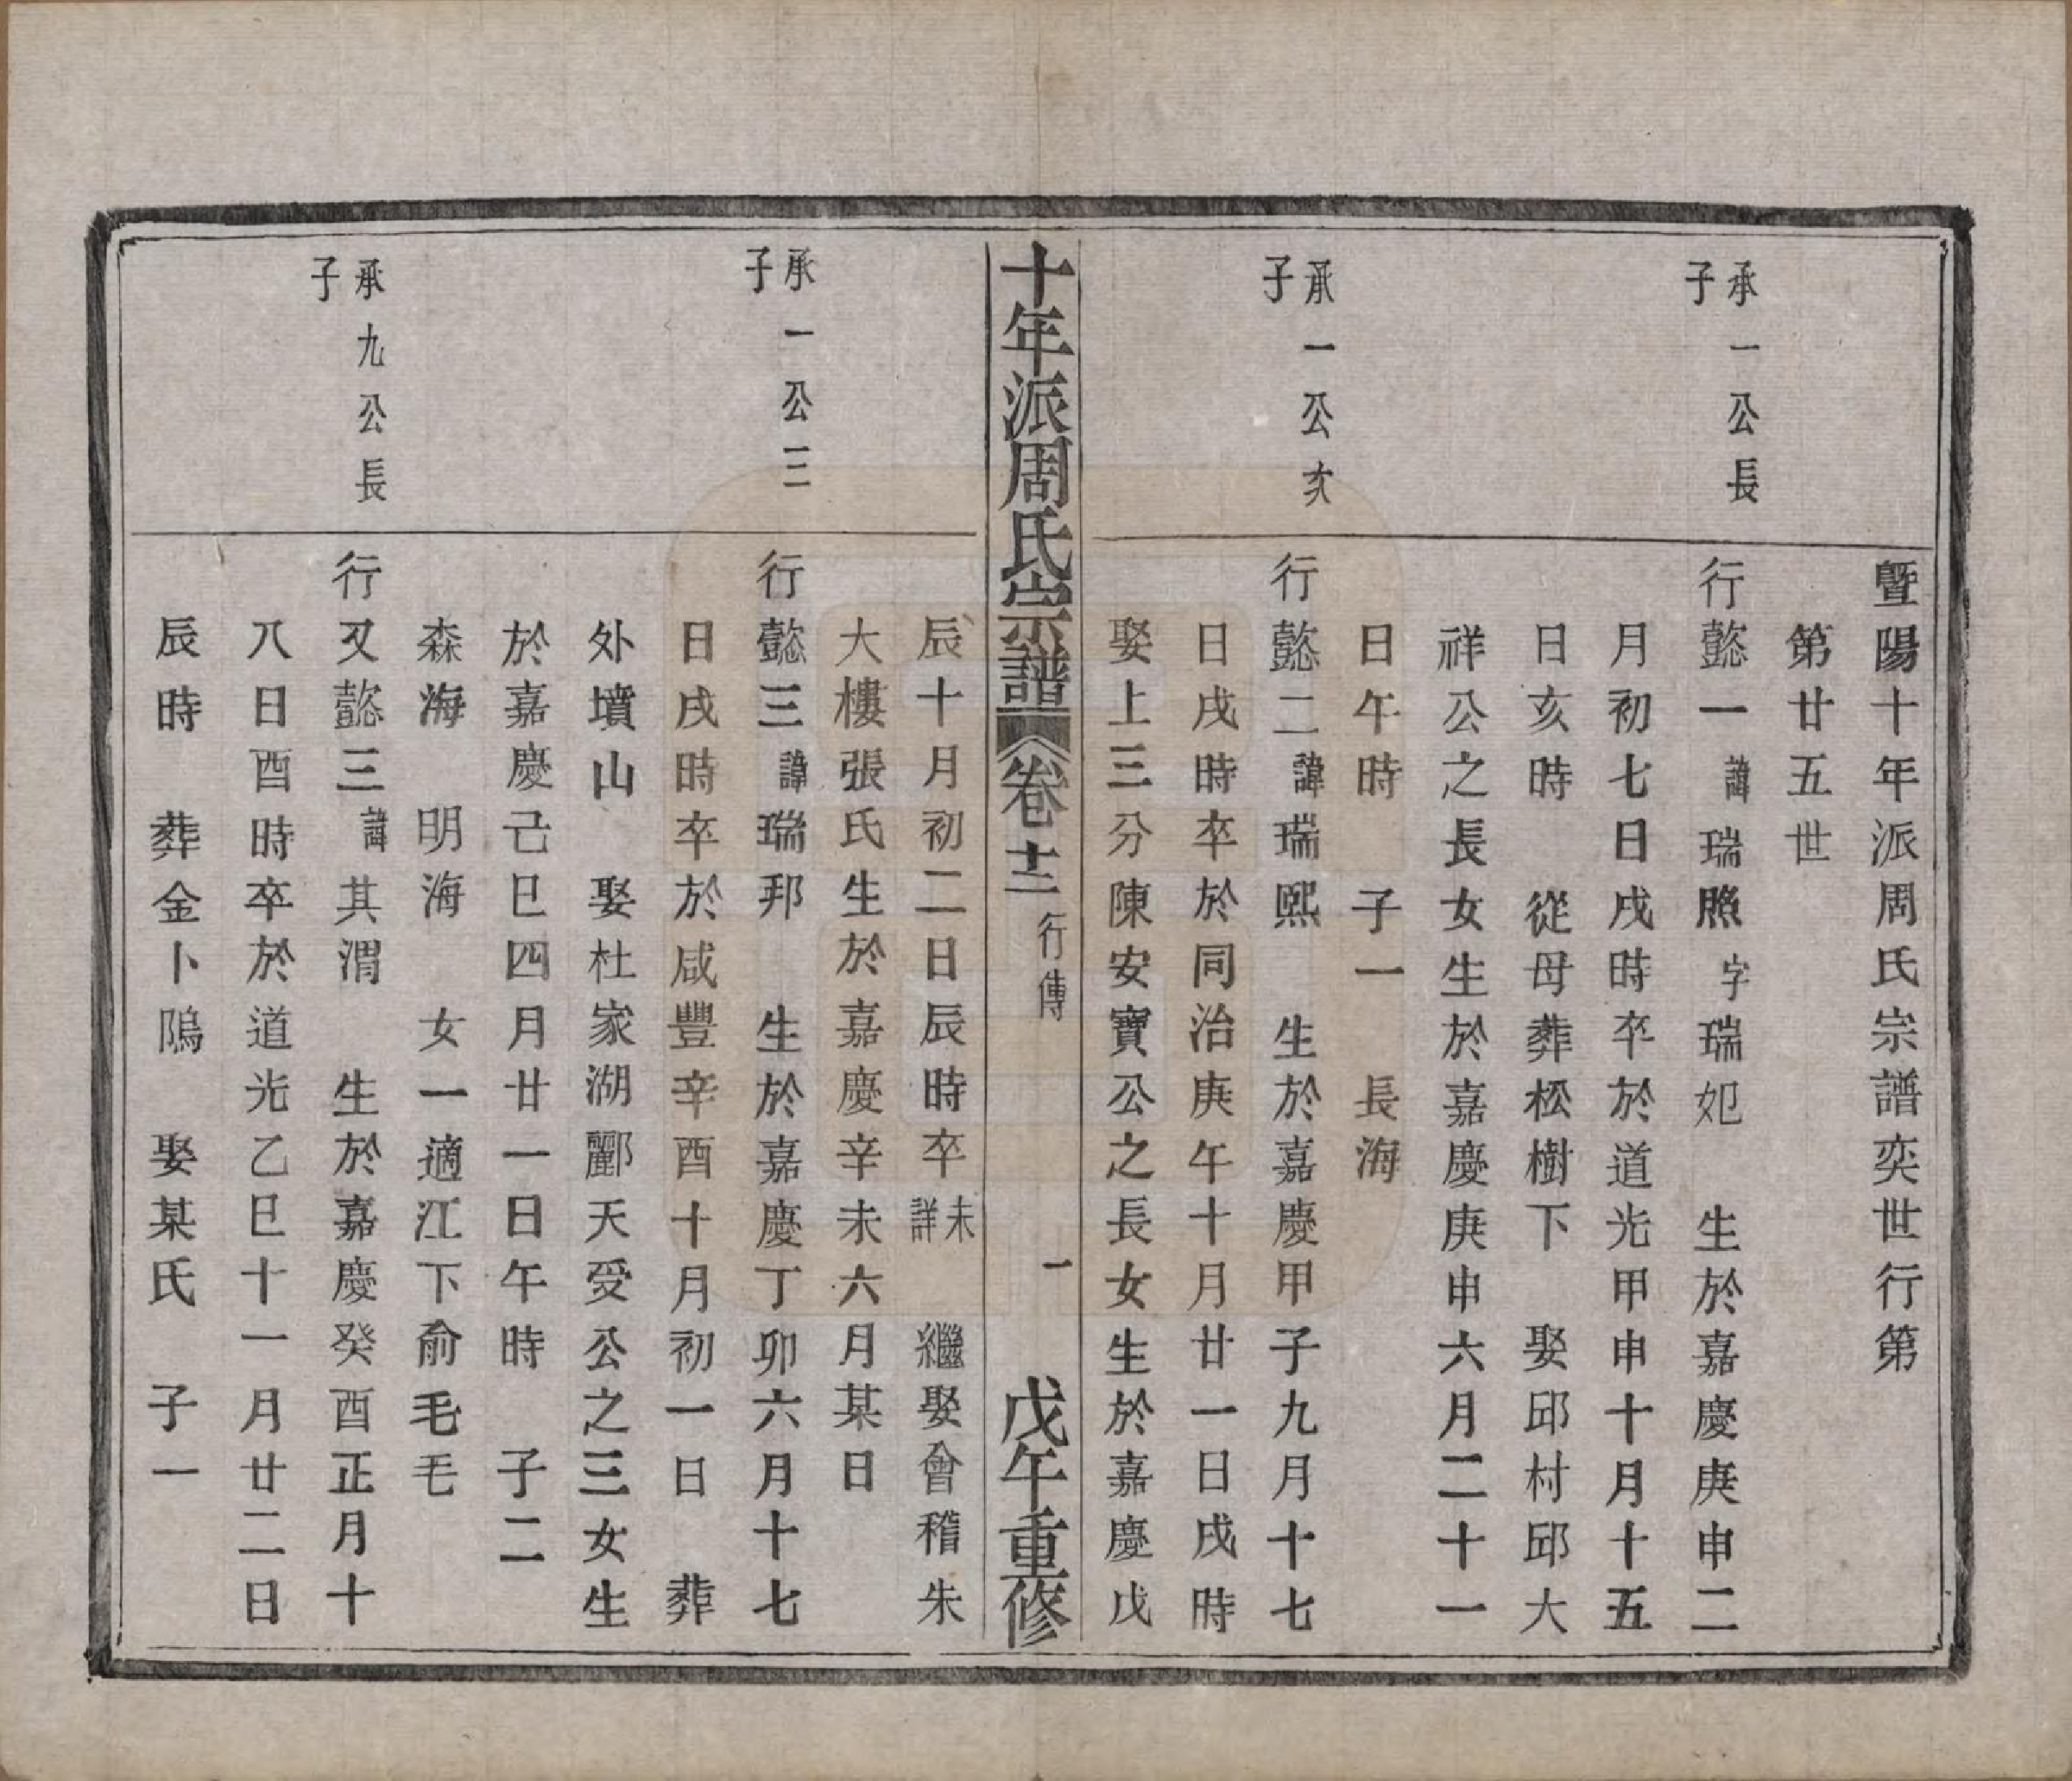 暨陽十年派周氏宗譜奕世行第
第廿五世
承一公長
子
行懿一諱瑞照字瑞妃 生於嘉慶庚申二
月初七日戌時卒於道光甲申十月十五
日亥時 從母葬松樹下 娶邱村邱大
祥公之長女生於嘉慶庚申六月二十一
日午時 子一 長海
承一公次
子
行懿二諱瑞熙 生於嘉慶甲子九月十七
日戌時卒於同治庚午十月廿一日戌時
娶上三分陳安寶公之長女生於嘉慶戊
十年派周氏宗譜 卷十二 行傳 一 戊午重修
辰十月初二日辰時卒未詳 繼娶會稽朱
大樓張氏生於嘉慶辛未六月某日
承一公三
子
行懿三諱瑞邦 生於嘉慶丁卯六月十七
日戌時卒於咸豐辛酉十月初一日 葬
外墳山 娶杜家湖酈天受公之三女生
於嘉慶己巳四月廿一日午時 子二
森海 明海 女一適江下俞毛毛
承九公長
子
行又懿三諱其渭 生於嘉慶癸酉正月十
八日酉時卒於道光乙巳十一月廿二日
辰時 葬金卜隖 娶某氏 子一